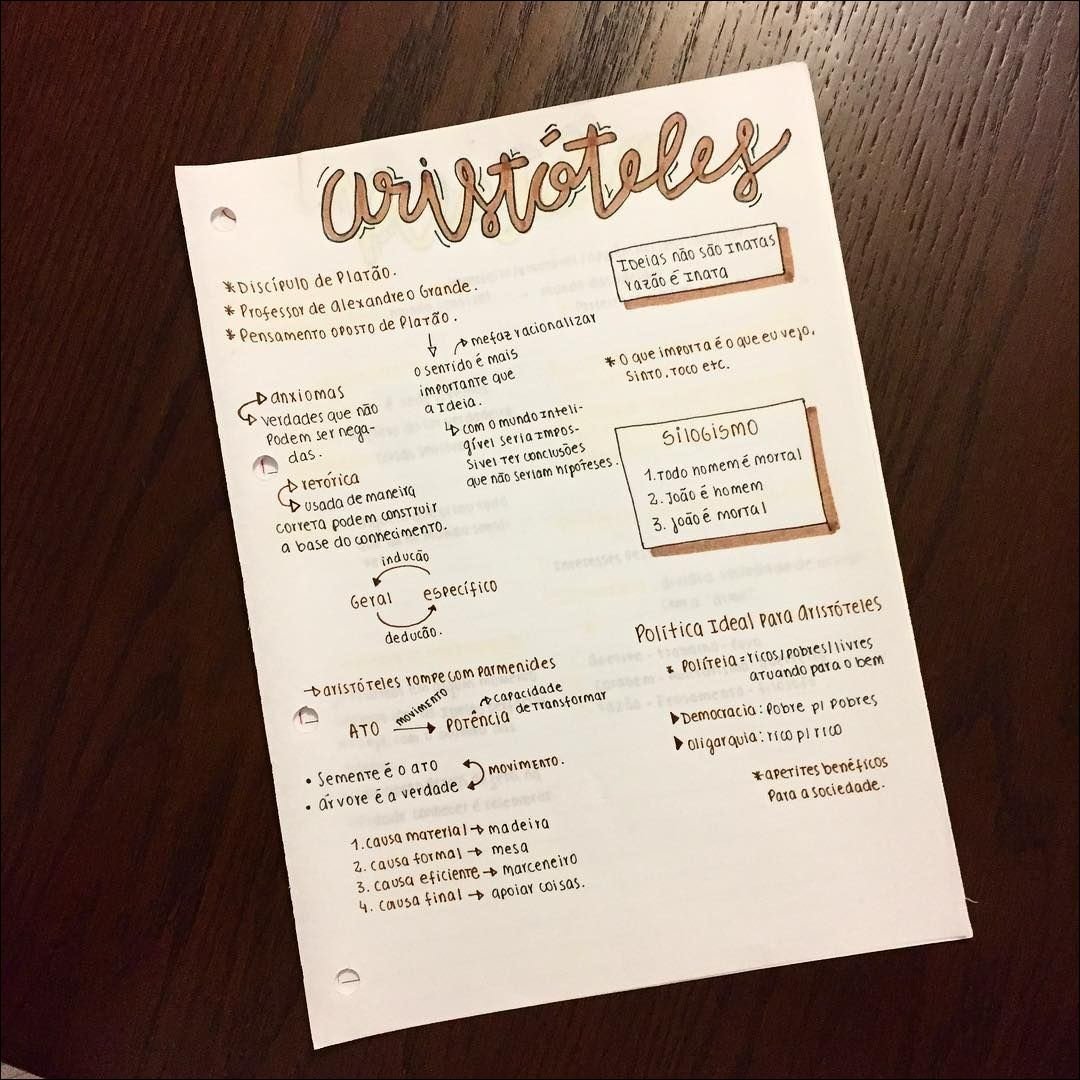 aristóteles
* Discípulo de Platão.
* Professor de Alexandre o Grande.
* Pensamento oposto de Platão.
o sentido é mais
importante que
a ideia.
me faz racionalizar
com o mundo inteli-
gível seria impos-
sível ter conclusões
que não seriam hipóteses.
anxiomas
verdades que não
podem ser nega-
das.
retórica
usada de maneira
correta podem construir
a base do conhecimento.
indução
Geral específico
dedução.
→ aristóteles rompe com parmenides
ATO movimento → Potência
capacidade
de transformar
• Semente é o ato
• árvore é a verdade
movimento.
1. causa material → madeira
2. causa formal → mesa
3. causa eficiente → marceneiro
4. causa final → apoiar coisas.
Ideias não são inatas
razão é inata
* O que importa é o que eu vejo,
sinto, toco etc.
silogismo
1. Todo homem é mortal
2. João é homem
3. João é mortal
Política Ideal para Aristóteles
* Politeia = ricos/pobres/livres
atuando para o bem
Democracia: Pobre p/ pobres
oligarquia: rico p/ rico
* apetites benéficos
para a sociedade.